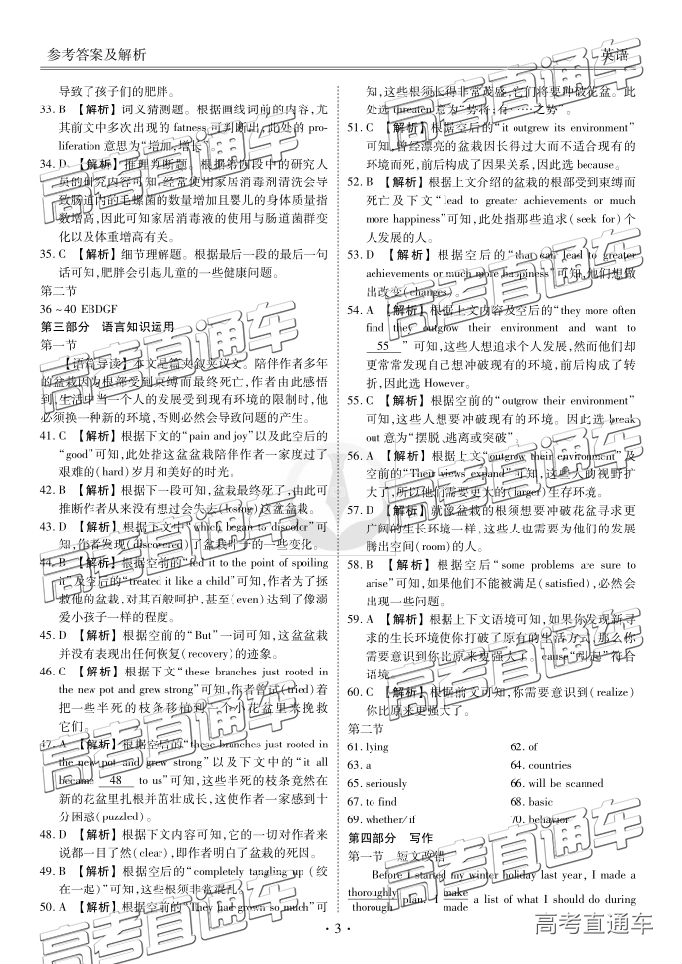 参考答案及解析
英语
导致了孩子们的肥胖。
33. B 【解析】词义猜测题。根据画线词前的内容,尤
其前文中多次出现的 fatness 可判断出,此处的 pro-
liferation 意思为“增加,增长”。
34. D 【解析】推理判断题。根据第四段中的研究人
员的研究内容可知,经常使用家居消毒剂清洗会导
致肠道内的毛螺菌的数量增加且婴儿的身体质量指
数增高,因此可知家居消毒液的使用与肠道菌群变
化以及体重增高有关。
35. C 【解析】细节理解题。根据最后一段的最后一句
话可知,肥胖会引起儿童的一些健康问题。
第二节
36～40 EBDGF
第三部分 语言知识运用
第一节
【语篇导读】本文是篇夹叙夹议文。陪伴作者多年
的盆栽因为根部受到束缚而最终死亡,作者由此感悟
到,生活中当一个人的发展受到现有环境的限制时,他
必须换一种新的环境,否则必然会导致问题的产生。
41. C 【解析】根据下文的“pain and joy”以及此空后的
“good”可知,此处指这盆盆栽陪伴作者一家度过了
艰难的(hard)岁月和美好的时光。
42. B 【解析】根据下一段可知,盆栽最终死了,由此可
推断作者从来没有想过会失去(losing)这盆盆栽。
43. D 【解析】根据下文中“which began to discolor”可
知,作者发现(discovered)了盆栽叶子的一些变化。
44. B 【解析】根据空前的“fed it to the point of spoiling
it”及空后的“treated it like a child”可知,作者为了拯
救他的盆栽,对其百般呵护,甚至(even)达到了像溺
爱小孩子一样的程度。
45. D 【解析】根据空前的“But”一词可知,这盆盆栽
并没有表现出任何恢复(recovery)的迹象。
46. C 【解析】根据下文“these branches just rooted in
the new pot and grew strong”可知,作者曾试(tried)着
把一些半死的枝条移植到一个小花盆里来挽救
它们。
47. A 【解析】根据空后的“these branches just rooted in
the new pot and grew strong”以及下文中的“it all
became 48 to us”可知,这些半死的枝条竟然在
新的花盆里扎根并茁壮成长,这使作者一家感到十
分困惑(puzzled)。
48. D 【解析】根据下文内容可知,它的一切对作者来
说都一目了然(clear),即作者明白了盆栽的死因。
49. B 【解析】根据空后的“completely tangling up(绞
在一起)”可知,这些根须非常混乱。
50. A 【解析】根据空前的“They had grown so much”可
知,这些根须长得非常茂盛,它们将要冲破花盆。此
处选 threaten 意为“势将;有……之势”。
51. C 【解析】根据空后的“it outgrew its environment”
可知,曾经漂亮的盆栽因长得过大而不适合现有的
环境而死,前后构成了因果关系,因此选 because。
52. B 【解析】根据上文介绍的盆栽的根部受到束缚而
死亡及下文“lead to greater achievements or much
more happiness”可知,此处指那些追求(seek for)个
人发展的人。
53. D 【解析】根据空后的“that can lead to greater
achievements or much more happiness”可知,他们想做
出改变(changes)。
54. A 【解析】根据上文内容及空后的“they more often
find they outgrow their environment and want to
55 ”可知,这些人想追求个人发展,然而他们却
更常常发现自己想冲破现有的环境,前后构成了转
折,因此选 However。
55. C 【解析】根据空前的“outgrow their environment”
可知,这些人想要冲破现有的环境。因此选 break
out 意为“摆脱、逃离或突破”。
56. A 【解析】根据上文“outgrow their environment”及
空前的“Their views expand”可知,这些人的视野扩
大了,所以他们需要更大的(larger)生存环境。
57. D 【解析】就像盆栽的根须想要冲破花盆寻求更
广阔的生长环境一样,这些人也需要为他们的发展
腾出空间(room)的人。
58. B 【解析】根据空后“some problems are sure to
arise”可知,如果他们不能被满足(satisfied),必然会
出现一些问题。
59. A 【解析】根据上下文语境可知,如果你发现新寻
求的生长环境使你打破了原有的生活方式,那么你
需要意识到你比原来更强大了。cause“引起”符合
语境。
60. C 【解析】根据前文可知,你需要意识到(realize)
你比原来更强大了。
第二节
61. lying 62. of
63. a 64. countries
65. seriously 66. will be scanned
67. to find 68. basic
69. whether/if 70. behavior
第四部分 写作
第一节 短文改错
Before I started my winter holiday last year, I made a
thoroughly plan. I make a list of what I should do during
thorough made
· 3 ·
高考直通车